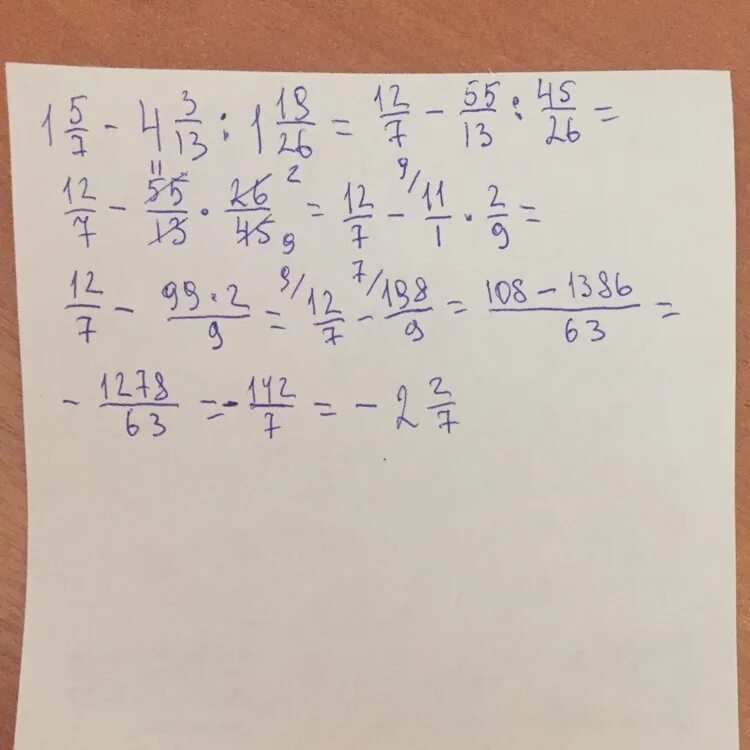 1 5/7 - 4 3/13 : 1 19/26 = 12/7 - 55/13 : 45/26 =
12/7 - 55/13 · 26/45 = 12/7 - 11/1 · 2/9 =
12/7 - 99·2/9 = 12/7 - 198/9 = 108 - 1386/63 =
- 1278/63 = - 142/7 = - 2 2/7